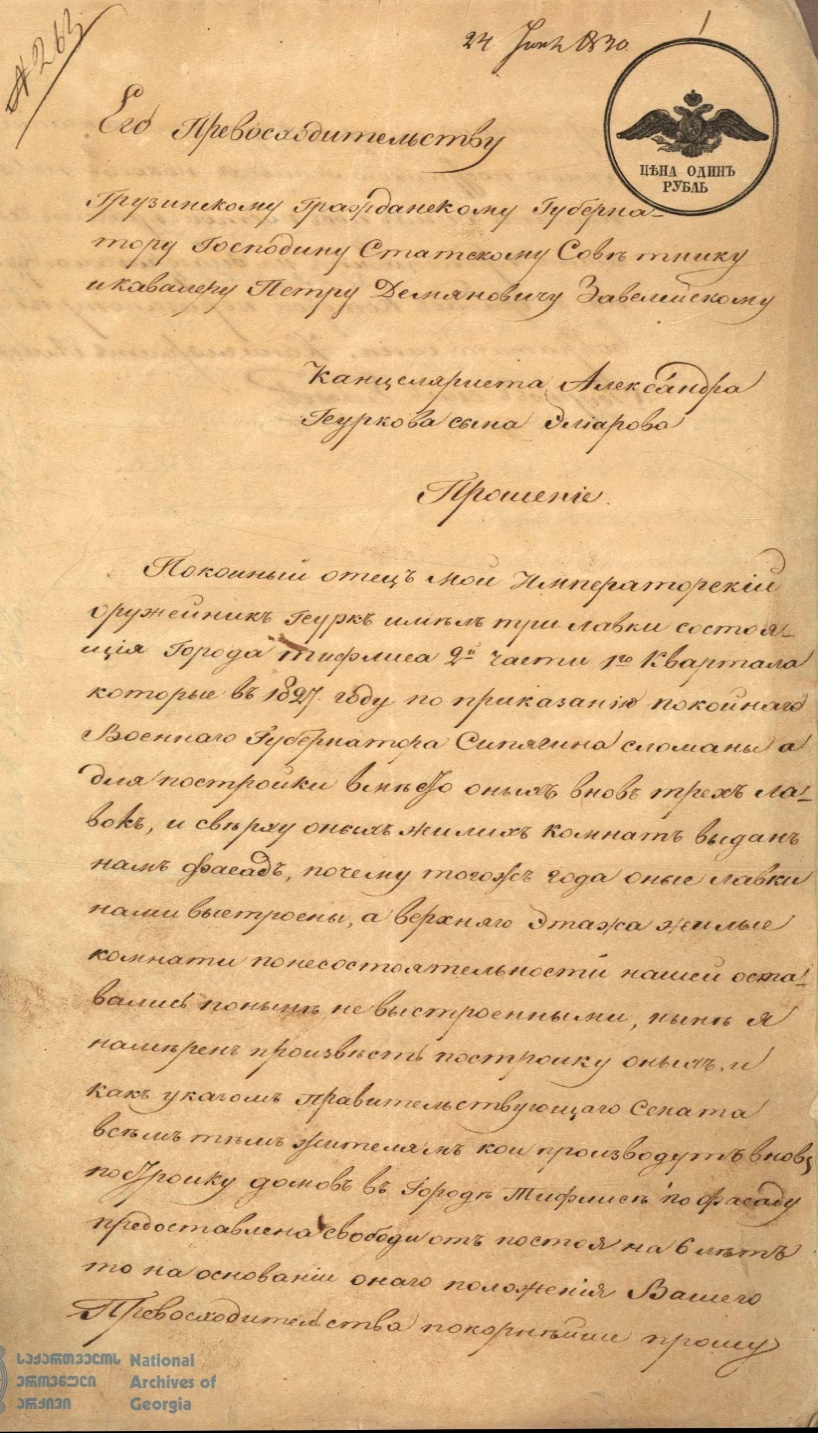 №263
24 Июня 1830.
1
ЦѢНА ОДИНЪ
РУБЛЬ
Его Превосходительству
Грузинскому Гражданскому Губерна-
тору Господину Статскому Совѣтнику
и кавалеру Петру Демяновичу Завелийскому
Канцеляриста Александра
Геуркова сына Эліарова
Прошеніе.
Покоиный отецъ мой Императорскій
оружейникъ Геуркъ имѣлъ три лавки состоя-
щія Города тифлиса 2й части 1го Квартала
которые въ 1827 году по приказанію покойнаго
Военнаго Губернатора Сипягина сломаны а
для постройки вмѣсто оныхъ вновь трехъ ла-
вокъ, и сверху оныхъ жилихъ комнатъ выданъ
намъ фасадъ, почему тогожъ года оные лавки
нами выстроены, а верхняго Этажа жилые
комнати понесостоятельности нашей оста-
вались понынѣ не выстроенными, нынѣ я
намѣренъ произвѣсть постройку оныхъ, и
какъ указомъ правительствующаго Сената
всѣмъ тѣмъ жителямъ кои производутъ вновь
постройку домовъ въ Городѣ Тифлисѣ по фасаду
предоставлена свободи отъ постоя на 6 лѣтъ
то на основаніи онаго положенія Вашего
Превосходительства покорнѣйши прошу
საქართველოს
ეროვნული
არქივი
National
Archives of
Georgia